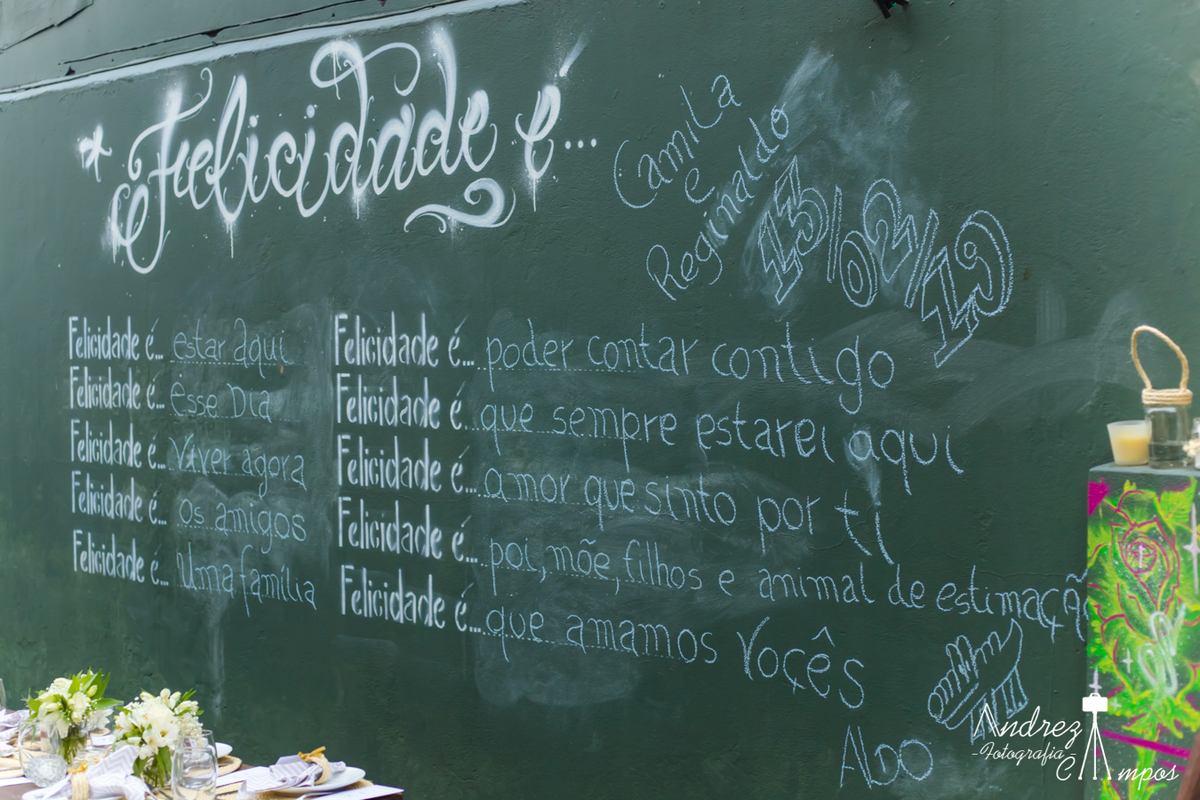 Felicidade é...
Camila
e
Reginaldo
13/02/19
Felicidade é... estar aqui
Felicidade é... Esse Dia
Felicidade é... Viver agora
Felicidade é... os amigos
Felicidade é... Uma família
Felicidade é... poder contar contigo
Felicidade é... que sempre estarei aqui
Felicidade é... amor que sinto por ti
Felicidade é... poi, mõe, filhos e animal de estimaçã
Felicidade é... que amamos Voçês
ALDO
Andrez
-Fotografia-
Campos